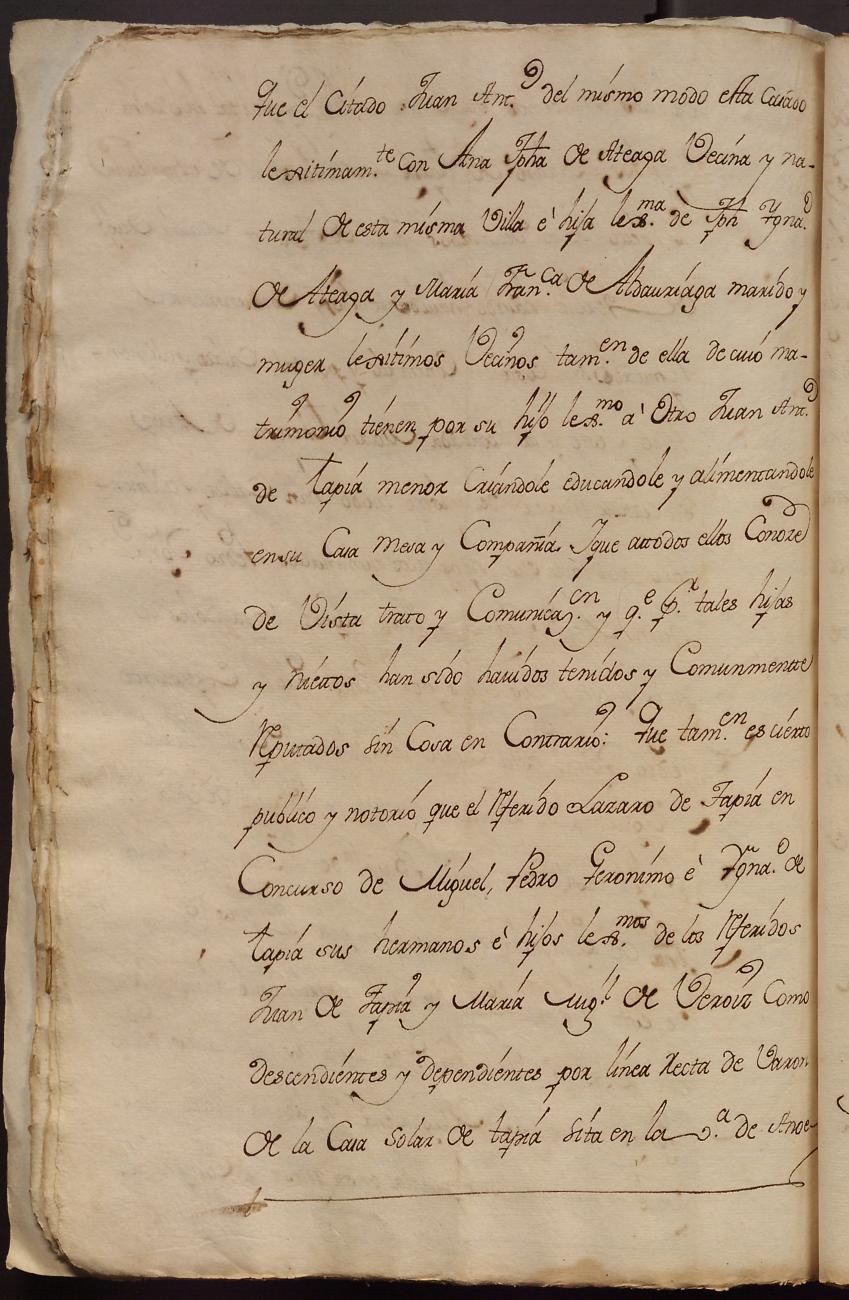 Que el Citado Juan Ant.º del mismo modo esta Casado
lexitimam.te con Ana Jpha de Ateaga Vecina y na-
tural de esta misma Villa è hija lex.ma de Jph Ygna.º
de Ateaga y Maria Fran.ca de Aldauriaga marido y
muger lexitimos Vecinos tam.en de ella de cuio ma-
trimonio tienen por su hijo lex.mo a Otro Juan Ant.º
de tapia menor criándole educandole y alimentandole
en su Casa Mesa y Compañia. Yque attodos ellos Conoze
de Vista trato y Comunicaz.on y q.e p.r tales hijas
y nietos han sido havidos tenidos y Comunmentte
Reputados sin Cosa en Contrario: Que tam.en es cierto
publico y notorio que el Referido Lazaro de Tapia en
Concurso de Miguel, Pedro Geronimo è Ygna.º de
tapia sus hermanos è hijos lex.mos de los Referidos
Juan de Tapia y Maria Mig.l de Veroiz Como
descendientes y dependientes por linea Recta de Varon
de la Casa Solar de tapia sita en la v.ª de Anoe-